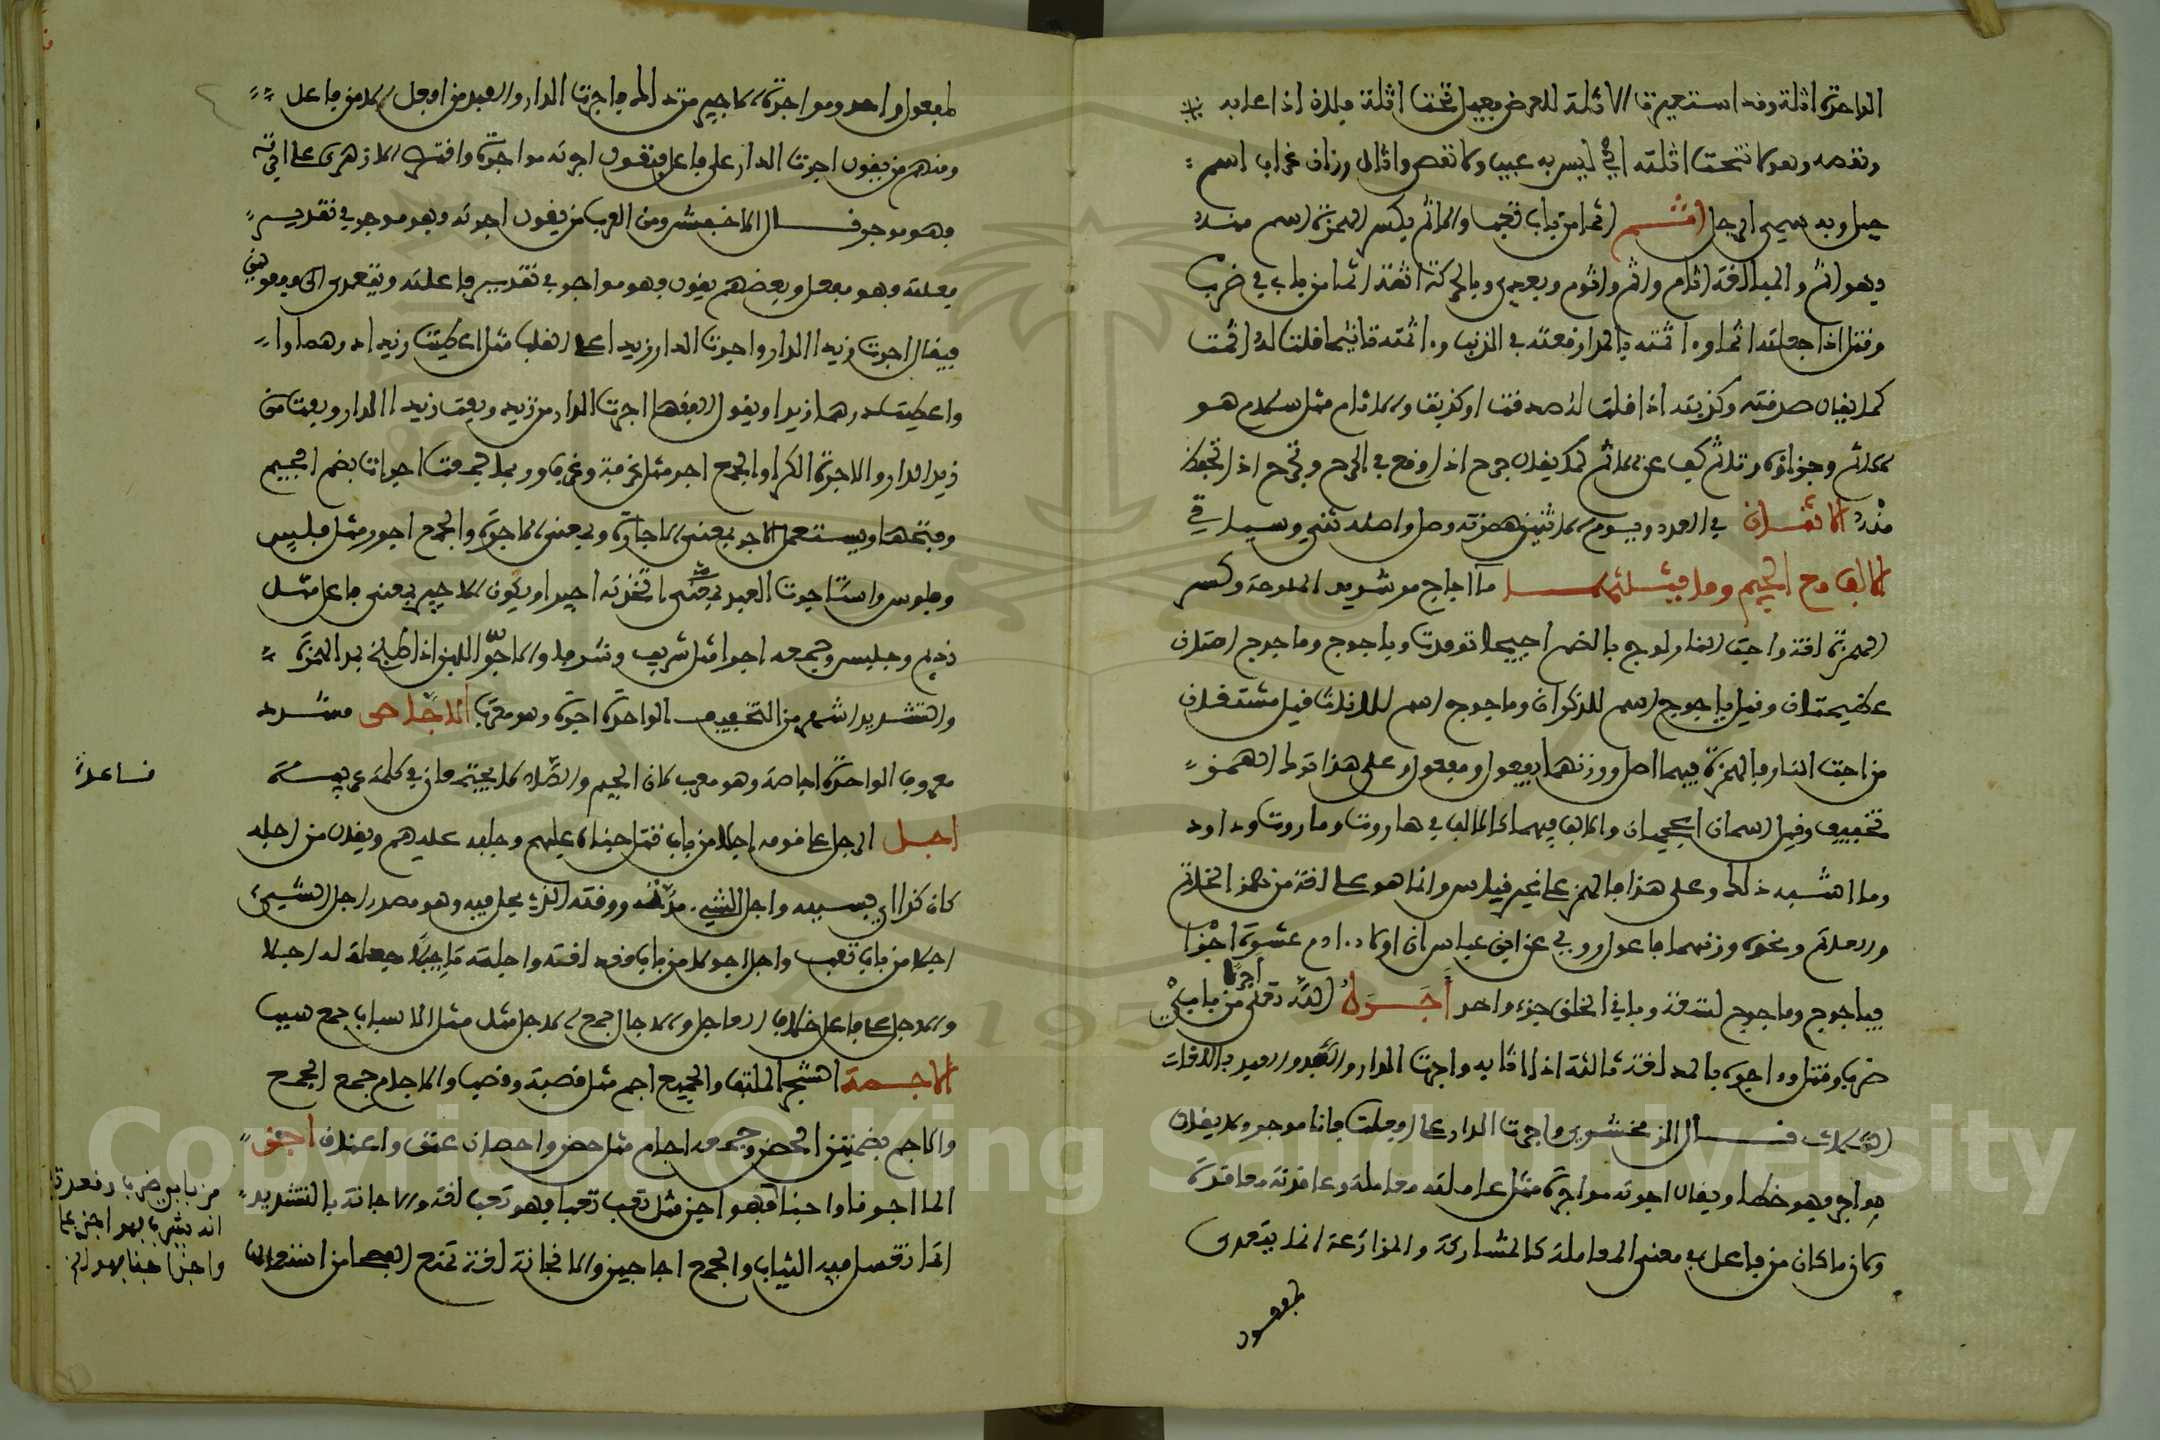 الواحدة اثلة وقد استعيرت الاثلة للعرض فقيل نحت اثلة فلان اذا عابه
ونقصه وهو لا تنحت اثلته اي ليس به عيب ولا نقص واثال وزان غراب اسم
جبل وبه سمي الرجل اثم اثما من باب تعب والاثم بكسر الهمزة اسم منه
فهو اثم والمبالغة اثام واثيم واثوم ويعدى بالحركة اثمته اثما من باب ضرب
وقتل اذا جعلته اثما وءاثمته بالمد اوقعته في الذنب واثمته تاثيما قلت له اثمت
كما يقال صدقته وكذبته اذا قلت له صدقت او كذبت والاثام مثل سلام هو
الاثم وجزاؤه وتاثم كف عن الاثم كما يقال حرج اذا وقع في الحرج وتحرج اذا تحفظ
منه الاثنان في العدد ويوم الاثنين همزته وصل واصله ثني وسياتي
الالف مع الجيم وما يثلثهما ماء اجاج مر شديد الملوحة وكسر
الهمزة لغة واجت النار تؤج بالضم اجيجا توقدت وياجوج وماجوج امتان
عظيمتان وقيل ياجوج اسم للذكران وماجوج اسم للاناث قيل مشتقان
من اجت النار فالهمزة فيهما اصل ووزنهما يفعول ومفعول وعلى هذا ترك الهمز
تخفيف وقيل اسمان اعجميان والالف فيهما كالالف في هاروت وماروت وداود
وما اشبه ذلك وعلى هذا فالهمز على غير قياس وانما هو على لغة من همز الخاتم
والعالم ونحوه وزنهما فاعول وروي عن ابن عباس ان اولاد ءادم عشرة اجزا
فياجوج وماجوج تسعة وباقي الخلق جزء واحد أَجَرَهُ اللّه أجرًا من بابي
ضرب وقتل وءاجره بالمد لغة ثالثة اذا اثابه واجرت الدار والعبد باللغات
الثلاث قال الزمخشري واجرت الدار على افعلت فانا موجر ولا يقال
مواجر فهو خطا ويقال اجرته مواجرة مثل عاملته معاملة وعاقدته معاقدة
ولان ما كان من فاعل في معنى المعاملة كالمشاركة والمزارعة انما يتعدى
لمفعول
لمفعول واحد ومواجرة الاجير من ذلك فاجرت الدار والعبد من افعل لا من فاعل
ومنهم من يقول اجرت الدار على فاعل فيقول اجرته مواجرة واقتصر الازهري على اجرته
فهو موجر قال الاخفش ومن العرب من يقول اجرته فهو موجر في تقدير
افعلته فهو مفعل وبعضهم يقول فهو مواجر في تقدير فاعلته ويتعدى الى مفعولين
فيقال اجرت زيدا الدار واجرت الدار زيدا على القلب مثل اعطيت زيدا درهما
واعطيت درهما زيدا ويقول الفقها اجرت الدار من زيد وبعت زيدا الدار وبعت من
زيد الدار والاجرة الكرا والجمع اجر مثل غرفة وغرف وربما جمعت اجرات بضم الجيم
وفتحها ويستعمل الاجر بمعنى الاجارة وبمعنى الاجرة والجمع اجور مثل فلس
وفلوس واستاجرت العبد اتخذته اجيرا ويكون الاجير بمعنى فاعل مثل
نديم وجليس وجمعه اجرا مثل شريف وشرفا والاجرّ اللبن اذا طبخ بمد الهمزة
والتشديد اشهر من التخفيف الواحدة اجرة وهو معرب الاجاص مشدد
معروف الواحدة اجاصة وهو معرب لان الجيم والصاد لا يجتمعان في كلمة عربية
اجل الرجل على قومه اجلا من باب قتل جناه عليهم وجلبه عليهم ويقال من اجله
كان كذا اي بسببه واجل الشيء مدته ووقته الذي يحل فيه وهو مصدر اجل الشيء
اجلا من باب تعب واجل اجولا من باب قعد لغة واجلته تاجيلا جعلت له اجلا
والاجل على فاعل خلاف العاجل والاجال جمع الاجل مثل الاسباب جمع سبب
الاجمة الشجر الملتف والجمع اجم مثل قصبة وقصب والاجام جمع الجمع
والاجم بضمتين الحصن وجمعه اجام مثل حصن واحصان عنق واعناق اجن
الما اجونا واجنا فهو اجن مثل تعب تعبا فهو تعب لغة والاجانة بالتشديد
انا تغسل فيه الثياب والجمع اجاجين والانجانة لغة تمتنع الفصحا من استعمالها
من بابي ضرب وقعد
انه يشرب فهو اجن على
واجن اجنا فهو اجن